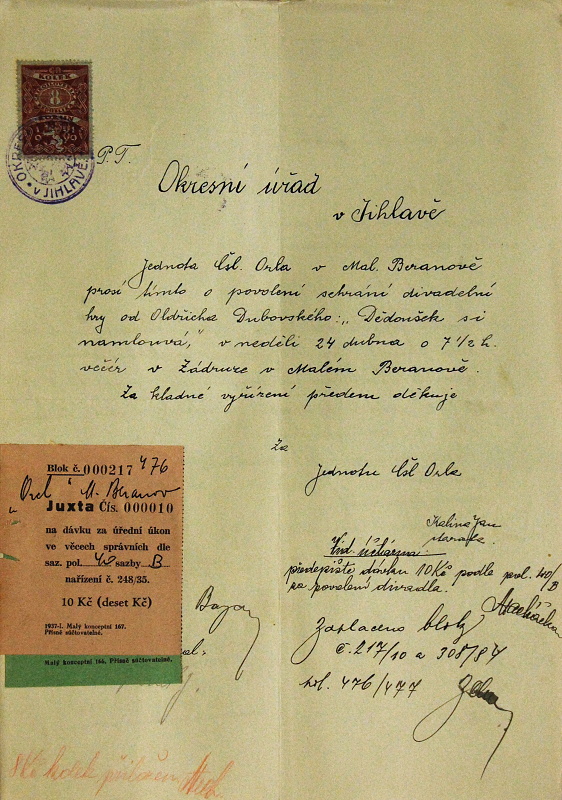 KOLEK
8
OKRES
V JIHLAVĚ
P.T.
Okresní úřad
v Jihlavě
Jednota Čsl. Orla v Mal. Beranově
prosí tímto o povolení sehrání divadelní
hry od Oldřicha Dubovského: „Dědoušek si
namlouvá," v neděli 24 dubna o 7 1/2 h.
večer v Zádruze v Malém Beranově.
Za kladné vyřízení předem děkuje
Za
Jednotu Čsl Orla
Kalina Jan
starosta.
Blok č. 000217 476
„Orel" M. Beranov
Juxta Čís. 000010
na dávku za úřední úkon
ve věcech správních dle
saz. pol. 40 sazby B
nařízení č. 248/35.
10 Kč (deset Kč)
1937-I. Malý konceptní 167.
Přísně súčtovatelné.
Malý konceptní 166. Přísně súčtovatelné.
Vid. účtárna:
předepište dávku 10 Kč podle pol. 40/B
za povolení divadla.
Zaplaceno bloky
č. 217/10 a 308/84
pol. 476/477
8 Kč kolek přiložen